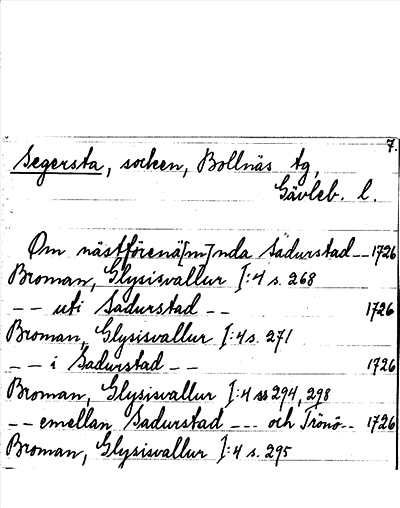 7.
Segersta, socken, Bollnäs tg,
Gävleb. l.
Om nästförenä[m]nda Sädurstad -- 1726
Broman, Glysisvallur I:4 s. 268
-- uti Sadurstad -- 1726
Broman, Glysisvallur I:4 s. 271
-- i Sadurstad -- 1726
Broman, Glysisvallur I:4 ss 294, 298
-- emellan Sadurstad --- och Trönö -- 1726
Broman, Glysisvallur I:4 s. 295